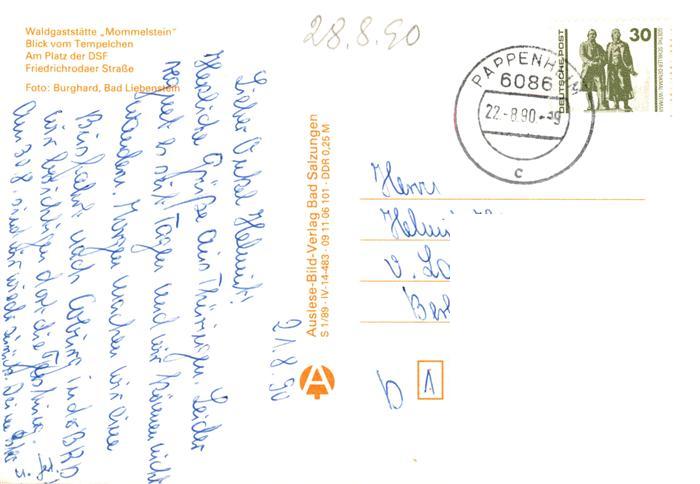 Waldgaststätte „Mommelstein"
Blick vom Tempelchen
Am Platz der DSF
Friedrichrodaer Straße
Foto: Burghard, Bad Liebenstein
28.8.90
21.8.90
Lieber Onkel Helmut!
Herzliche Grüße aus Thüringen. Leider
regnet es seit Tagen und wir können nicht
wandern. Morgen machen wir eine
Busfahrt nach Coburg in der BRD
wir besichtigen dort die Festung.
Am 30.8. sind wir wieder zurück.
u.
Auslese-Bild-Verlag Bad Salzungen
S 1/89 · IV-14-483 · 09 11 06 101 · DDR 0,25 M
A
PAPPENH
6086
22.-8.90-
c
DEUTSCHE POST
30
GOETHE-SCHILLER-DENKMAL WEIMAR
Herrn
Helm
v. Lo
Berl
b
1